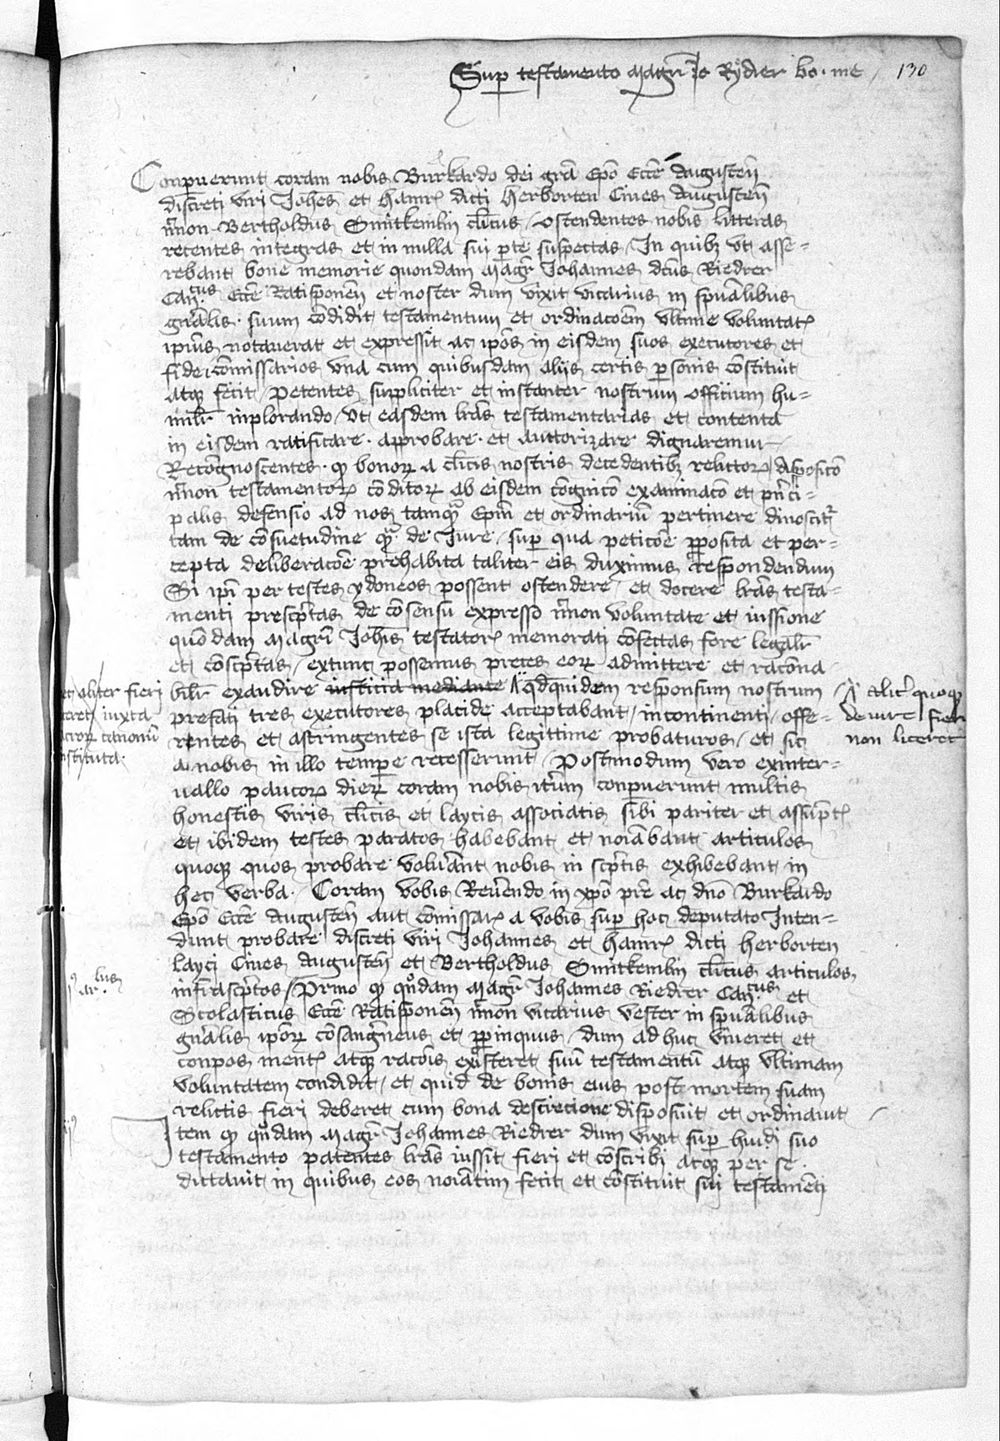 Sup testamento magri Jo Rydrer bo. me
130
Conparuerunt coram nobis Burkardo dei gra Epo Ecce Augusten
discreti viri Johes et Hainr dicti Herborten Cives Augusten
nnon Bertholdus Smitkemlin clicus ostendentes nobis litteras
recentes integras et in nulla sui pte suspectas In quibz vt asse=
rebant bone memorie quondam magr Johannes dcus Riedrer
Canicus Ecce Ratisponen et noster dum vixit vicarius in spualibus
gnalis suum codidit testamentum et ordinacoem vltime voluntat
ipius notaverat et expressit ac ipos in eisdem suos executores et
fideicomissarios vna cum quibusdam alijs certis psonis costituit
atqz fecit Petentes suppliciter et instanter nostrum officium hu=
milr inplorando vt easdem lras testamentarias et contenta
in eisdem ratificare approbare et auctorizare dignaremur
Recongnoscentes qz bonor a clicis nostris decedentibz relictor disposico
nnon testamentor coditor ab eisdem cognico examinaco et pnci=
palis defensio ad nos tamqz Epm et ordinariu pertinere dinoscitr
tam de cosuetudine qz de Jure sup qua peticoe pposita et per=
cepta deliberacoe prehabita taliter eis duximus respondendum
Si ipi per testes ydoneos possent ostendere et docere lras testa=
menti prescptas de cosensu expresso nnon voluntate et iussione
quodam magri Johis testator memorati cofectas fore legalr
et coscptas extunc possemus preces eor admittere et racona
bilr exaudire iusticia mediante qdquidem responsum nostrum
prefati tres executores placide acceptabant incontinenti offe=
rentes et astringentes se ista legittime probaturos et sic
a nobis in illo tempe recesserunt Postmodum vero exinter=
uallo paucor dier coram nobis itum conpuerunt multis
honestis viris clicis et laycis associatis sibi pariter et assupt
et ibidem testes paratos habebant et noiabant articulos
quoqz quos probare voluant nobis in scptis exhibebant in
hec verba Coram vobis Reuendo in xpo pre ac dno Burkardo
Epo Ecce Augusten aut comissar a vobis sup hoc deputato Inten=
dunt probare discreti viri Johannes et Hainr dicti Herborten
layci Cives Augusten et Bertholdus Smitkemlin clicus articulos
infrascptos Primo qz qndam magr Johannes Riedrer Canicus et
Scolasticus Ecce Ratisponen nnon vicarius vester in spualibus
gnalis ipor cosangneus et ppinquus dum adhuc viveret et
conpos ment atqz racois existeret suu testamentu atqz vltimam
voluntatem condidit et quid de bonis eius post mortem suam
relictis fieri deberet cum bona descrecione disposuit et ordinauit
Item qz qndam magr Johannes Riedrer dum vixit sup huidi suo
testamento patentes lras iussit fieri et coscribi atqz per se
dictavit in quibus eos noiatim fecit et costituit sui testamenti
alitr quoqz
de iure fieri
non liceret
aliter fieri
iuxta
canonu
instituta